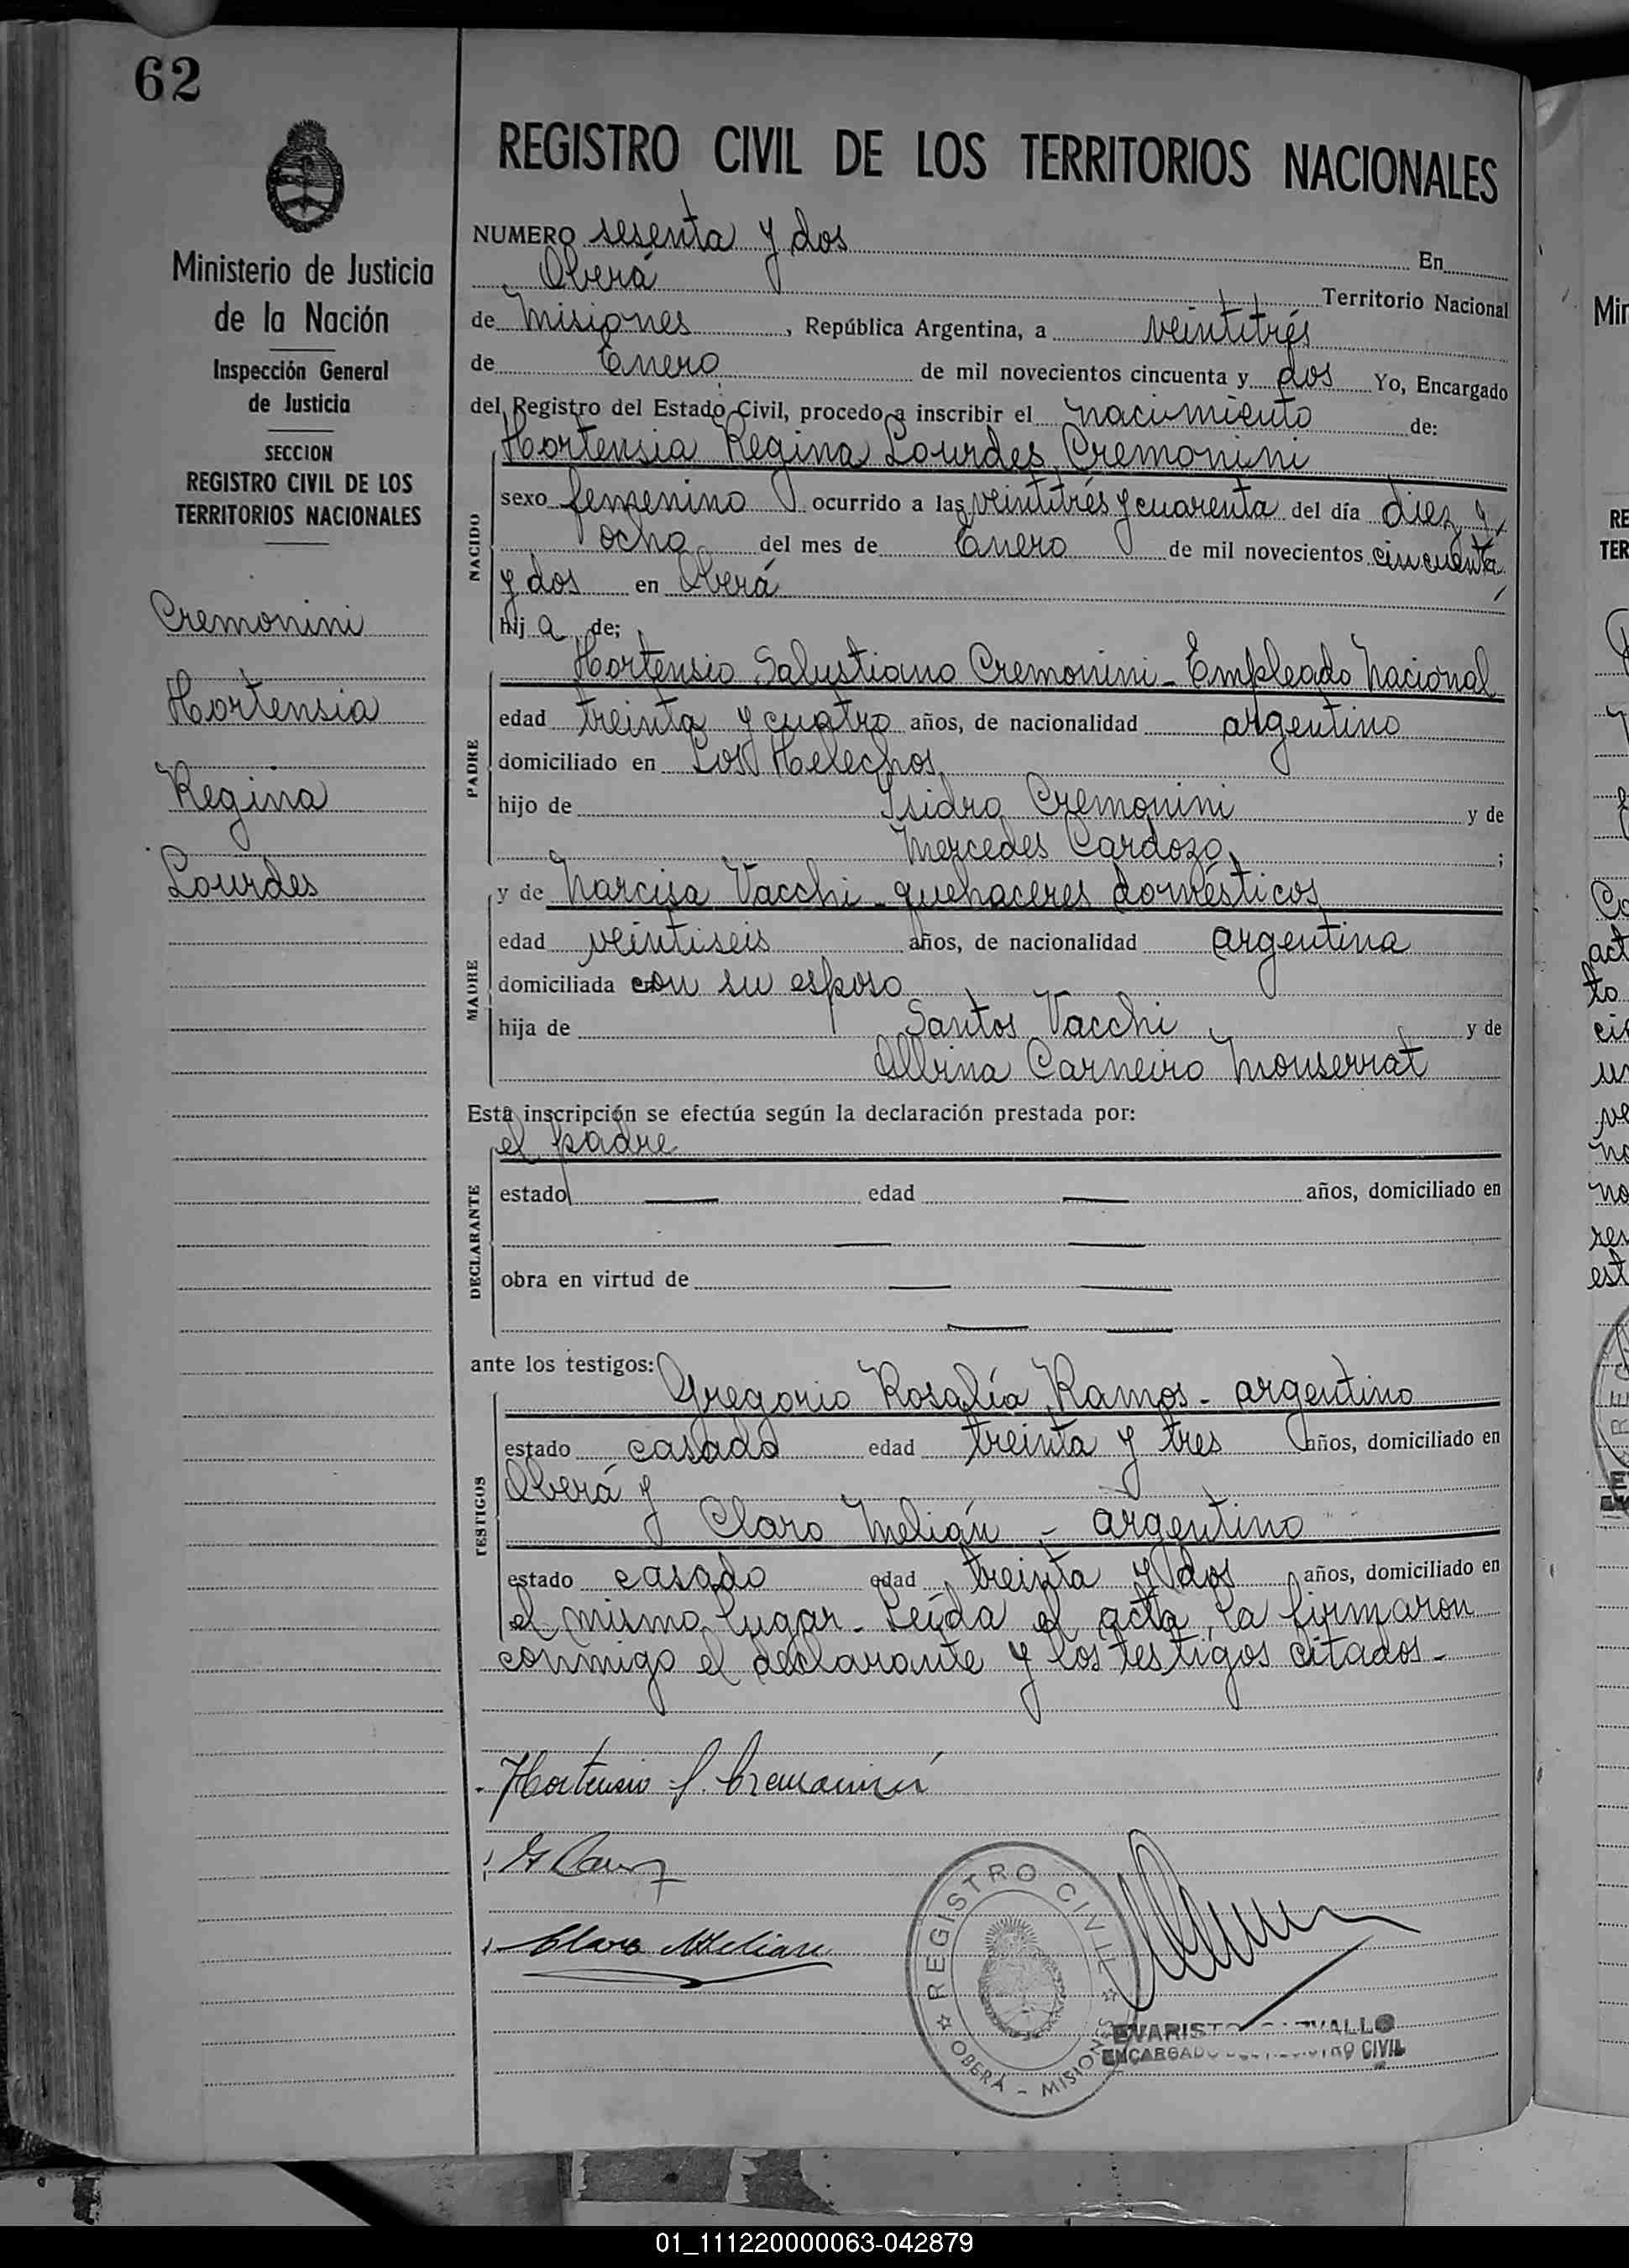 62
Ministerio de Justicia
de la Nación
Inspección General
de Justicia
SECCION
REGISTRO CIVIL DE LOS
TERRITORIOS NACIONALES
Cremonini
Hortensia
Regina
Lourdes
REGISTRO CIVIL DE LOS TERRITORIOS NACIONALES
NUMERO sesenta y dos En
Oberá Territorio Nacional
de Misiones, República Argentina, a veintitrés
de Enero de mil novecientos cincuenta y dos Yo, Encargado
del Registro del Estado Civil, procedo a inscribir el nacimiento de:
Hortensia Regina Lourdes Cremonini
NACIDO
sexo femenino ocurrido a las veintitrés y cuarenta del día diez y
ocho del mes de Enero de mil novecientos cincuenta
y dos en Oberá
hij a de;
Hortensio Salustiano Cremonini - Empleado Nacional
PADRE
edad treinta y cuatro años, de nacionalidad argentino
domiciliado en Los Helechos
hijo de Isidro Cremonini y de
Mercedes Cardozo;
y de Narcisa Vacchi - quehaceres domésticos
MADRE
edad veintiseis años, de nacionalidad argentina
domiciliada con su esposo
hija de Santos Vacchi y de
Albina Carneiro Monserrat
Esta inscripción se efectúa según la declaración prestada por:
el padre
DECLARANTE
estado edad años, domiciliado en
obra en virtud de
ante los testigos:
Gregorio Rosalía Ramos - argentino
TESTIGOS
estado casado edad treinta y tres años, domiciliado en
Oberá y
Claro Melián - argentino
estado casado edad treinta y dos años, domiciliado en
el mismo lugar - Leída el acta, la firmaron
conmigo el declarante y los testigos citados -
Hortensio S. Cremonini
Claro Melian
REGISTRO CIVIL
OBERA - MISIONES
EVARISTO
ENCARGADO CIVIL
Min
RE
TER
01_111220000063-042879